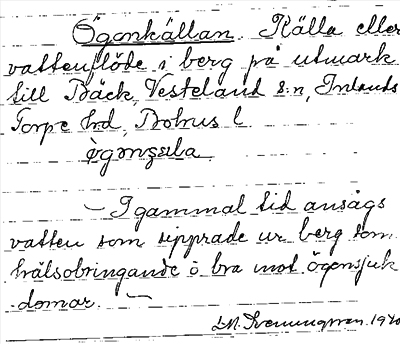 Ögonkällan. Källa eller
vattenflöde i berg på utmark
till Bäck, Vesteland s:n, Inlands
Torpe hd, Bohus l
ògonsela
– I gammal tid ansågs
vatten som sipprade ur berg som
hälsobringande o bra mot ögonsjuk
domar. –